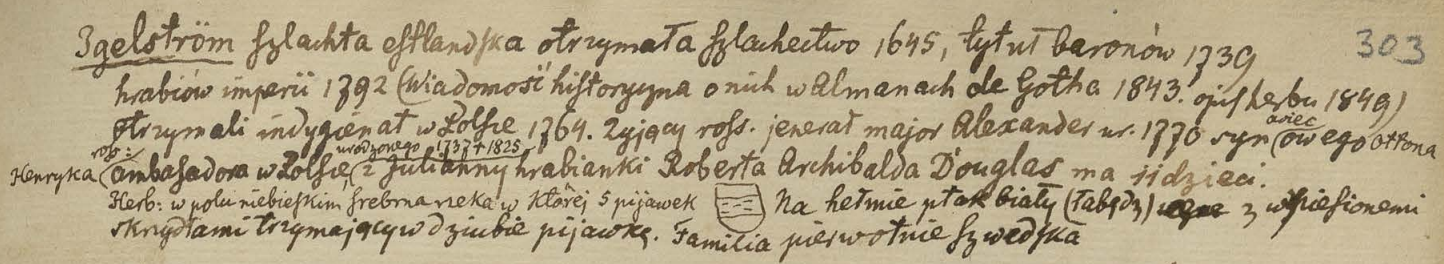 Igelström szlachta estlandska otrzymała szlachectwo 1645, tytuł baronów 1739 303
hrabiów imperii 1792 (Wiadomość historyczna o nich w Almanach de Gotha 1843. opis herbu 1849)
otrzymali indygienat w Polsce 1764. Żyjący ross. jenerał major Alexander ur. 1770 syn (owego Ottona
ross: urodzonego 1737 + 1825
Henryka (ambasadora w Polsce, z Julianny hrabianki Roberta Archibalda Douglas ma dzieci.
Herb: w polu niebieskim srebrna rzeka w której 5 pijawek Na hełmie ptak biały (łabędź) z wzniesionemi
skrzydłami trzymający w dziubie pijawkę. Familia pierwotnie szwedzka